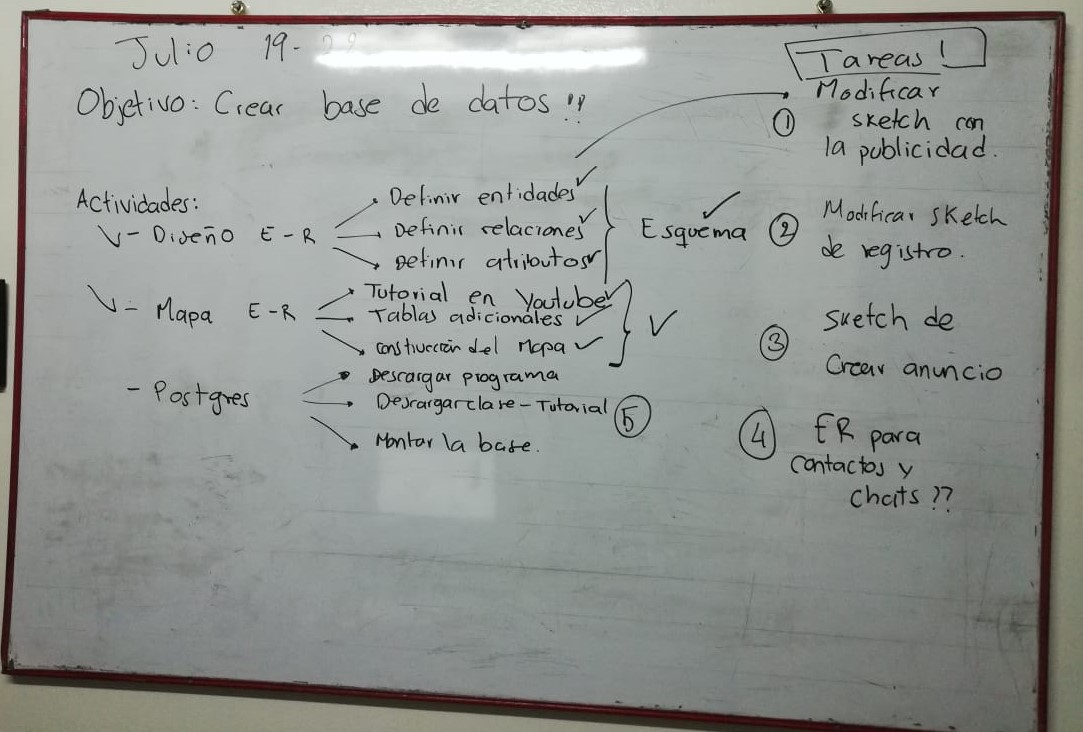 Julio 19-29
Objetivo: Crear base de datos !!
Actividades:
- Diseño E-R
Definir entidades
Definir relaciones
Definir atributos
Esquema
- Mapa E-R
Tutorial en Youtube
Tablas adicionales
construcción del Mapa
- Postgres
Descargar programa
Descargar clase - Tutorial
5
Montar la base.
Tareas!
1
Modificar
sketch con
la publicidad.
2
Modificar sketch
de registro.
3
Sketch de
Crear anuncio
4
ER para
contactos y
chats ??